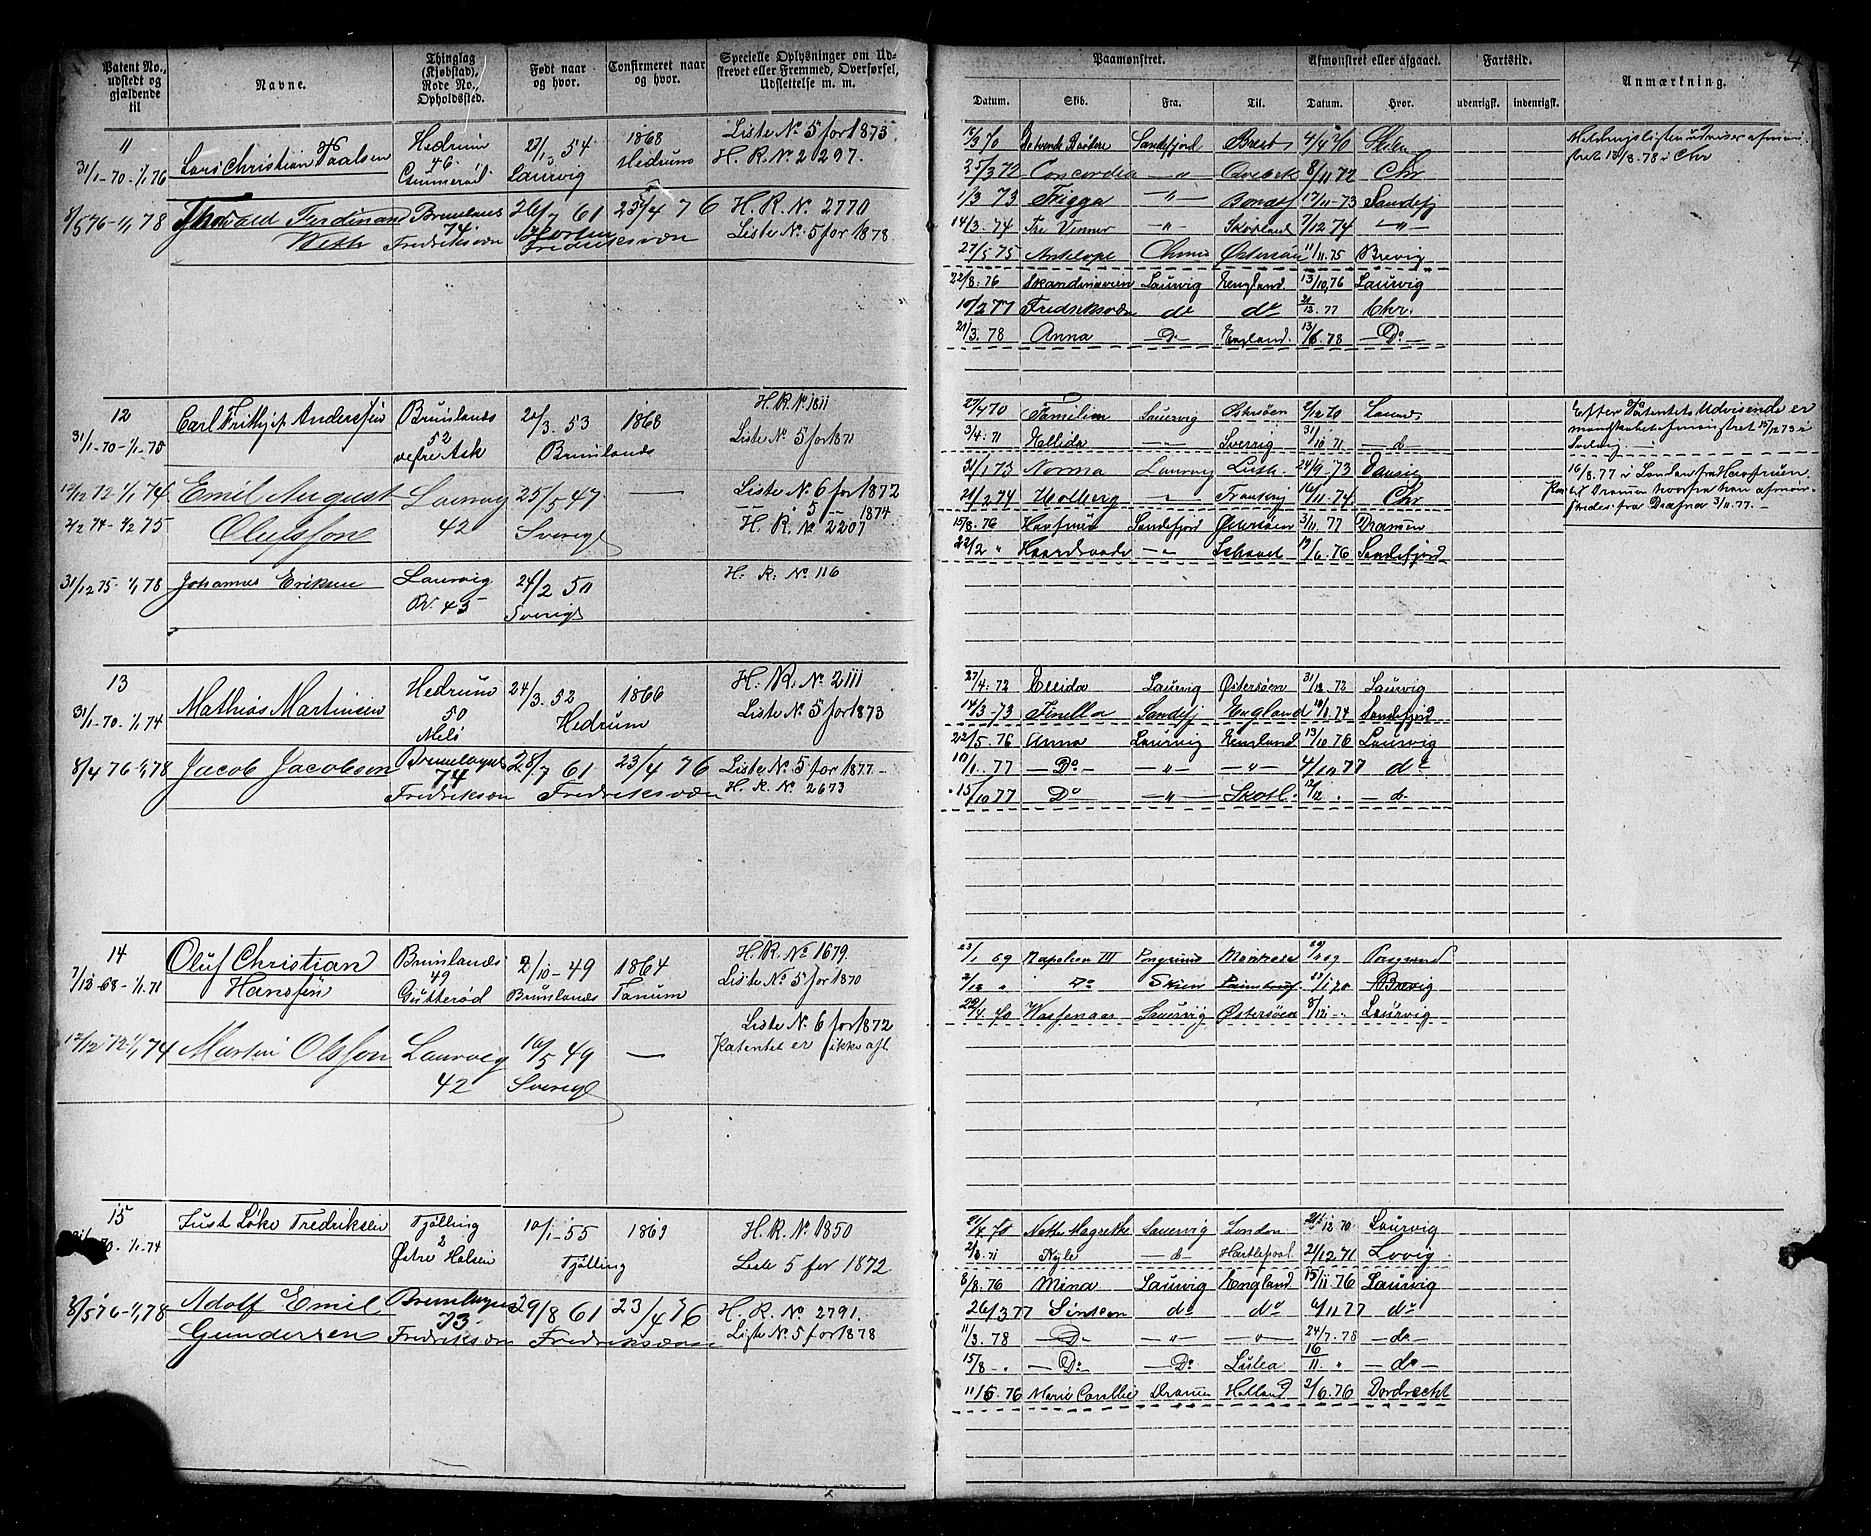 Patent No., udstedt og gjældende til
Navne.
Thinglag (Kjøbstad), Rode No., Opholdssted.
Født naar og hvor.
Confirmeret naar og hvor.
Specielle Oplysninger om Udskrevet eller Fremmed, Overførsel, Udslettelse m. m.
11
31/1-70-1/1 76
Lars Christian Paalsen
Hedrum
46
Laurvig
1868
Hedrum
Liste No 5 for 1873
H. R. No 2297.
8/5 76-1/1 78
Thorvald Ferdinand
Brunlanes
74
Fredriksvæn
26/7 61
Fredriksvæn
23/4 76
H. R. No. 2770
Liste No. 5 for 1878
12
31/1-70-1/1-75
Carl Frithjof Anderssen
Brunlanes
52
vestre Ask
2/3. 53
1868
Brunlanes
H. R. No 1811
Liste No 5 for 1871
12/12 72-1/1 74
2/2 74-1/2 75
Emil August
Olufsson
Laurvig
42
25/5 47
Sverige
Liste No. 6 for 1872
— 5 — 1874
H. R. No 2207
31/12 75-1/1 78
Johannes Eriksen
Laurvig
43
24/2 50
Sverige
H. R. No 116
13
31/1-70-1/1 74
Mathias Martinsen
Hedrum
50
Melø
24/3. 52
1866
Hedrum
H. R. No 2111
Liste No. 5 for 1873
8/4 76-1/1 78
Jacob Jacobsen
Brunlanes
74
Fredriksvæn
28/7 61
23/4 76
Fredriksvæn
Liste No. 5 for 1877-
H. R. No 2673
14
7/12-68-1/1.71
Oluf Christian
Hanssen
Brunlanes
49
Gutterød
2/10-49
Brunlanes
1864
Tanum
H. R. No 1679.
Liste No 5 for 1870
12/12 72-1/1 74
Martin Olsson
Laurvig
42
16/5 49
Sverige
Liste No. 6 for 1872
Patentet er ikke afl
15
70.-1/1-74
Just Løke Fredriksen
Tjølling
2
Østre Halsen
10/1-55
1869
Tjølling
H. R. No. 1850
Liste 5 for 1872
8/5 76-1/1 78
Adolf Emil
Gundersen
Brunlanes
73
Fredriksvæn
29/8 61
23/4 76
Fredriksvæn
H. R. No. 2791.
Liste No. 5 for 1878
4
Paamønstret.
Afmønstret eller afgaaet.
Fartstid.
Anmærkning.
Datum.
Skib.
Fra.
Til.
Datum.
Hvor.
udenrigsk.
indenrigsk.
Sandefjord Brest 4/4 70 Skien
25/3 72 Concordia — 8/11 72 Chr
1/3 73 Frigga — 17/11-73 Sandefj
14/3. 74 Tre Venner — Skotland 7/12 74 —
27/5 75 Antelope Østersøen 11/11. 75 Brevig
22/8. 76 Skandinavien Laurvig England 13/10. 76 Laurvig
10/2 77 Fredriksvæn do do 21/12. 77 Chr.
21/3. 78 Anna Do England. 13/6. 78 Do
27/4 70 Familien Laurvig Østersøen
3/4. 71 Ellida — Sverrig 31/10 71 do
31/1 73 Norma Laurvig 24/9. 73 Danzig
21/2 74 Holberg — 16/11. 74 Chr
15/8. 76 Havfruen Sandefjord Østersøen 3/11. 77 Dramen
22/2 — 19/6. 76 Sandefjord
Efter Patentets Udvisende er
mandskabet afmønstret 15/12 73 i
16/8. 77 i London fra Havfruen
Dramen hvorfra han afmønstredes fra 3/11. 77.
27/4. 72 Ellida Laurvig Østersøen 31/12. 72 Laurvig
14/3. 73 Finella Sandefj England 10/1 74 Sandefjord
22/5. 76 Anna Laurvig England 13/10 76 Laurvig
10/1. 77 Do — — 4/10 77 do
15/10 77 Do — Skotl. 12/12 do
23/1 69 Napoleon III Porsgrund
2/12 Do Skien Brevig
22/4. 70 Wassenaar Laurvig Østersøen 8/12 Laurvig
21/4. 70 Nette Magrethe Laurvig London 12 70 Laurvig
2/3. 71 Kyle do Hartlepool 21/12 71
8/8. 76 Mina Laurvig England 15/11 76 Laurvig
26/3 77 do do 6/11 77 do
11/3. 78 Do — — 24/7. 78 do
15/8 Do Do Lulea 16/11. do
11/5. 76 Dramen Holland 2/6. 76 Dordrecht